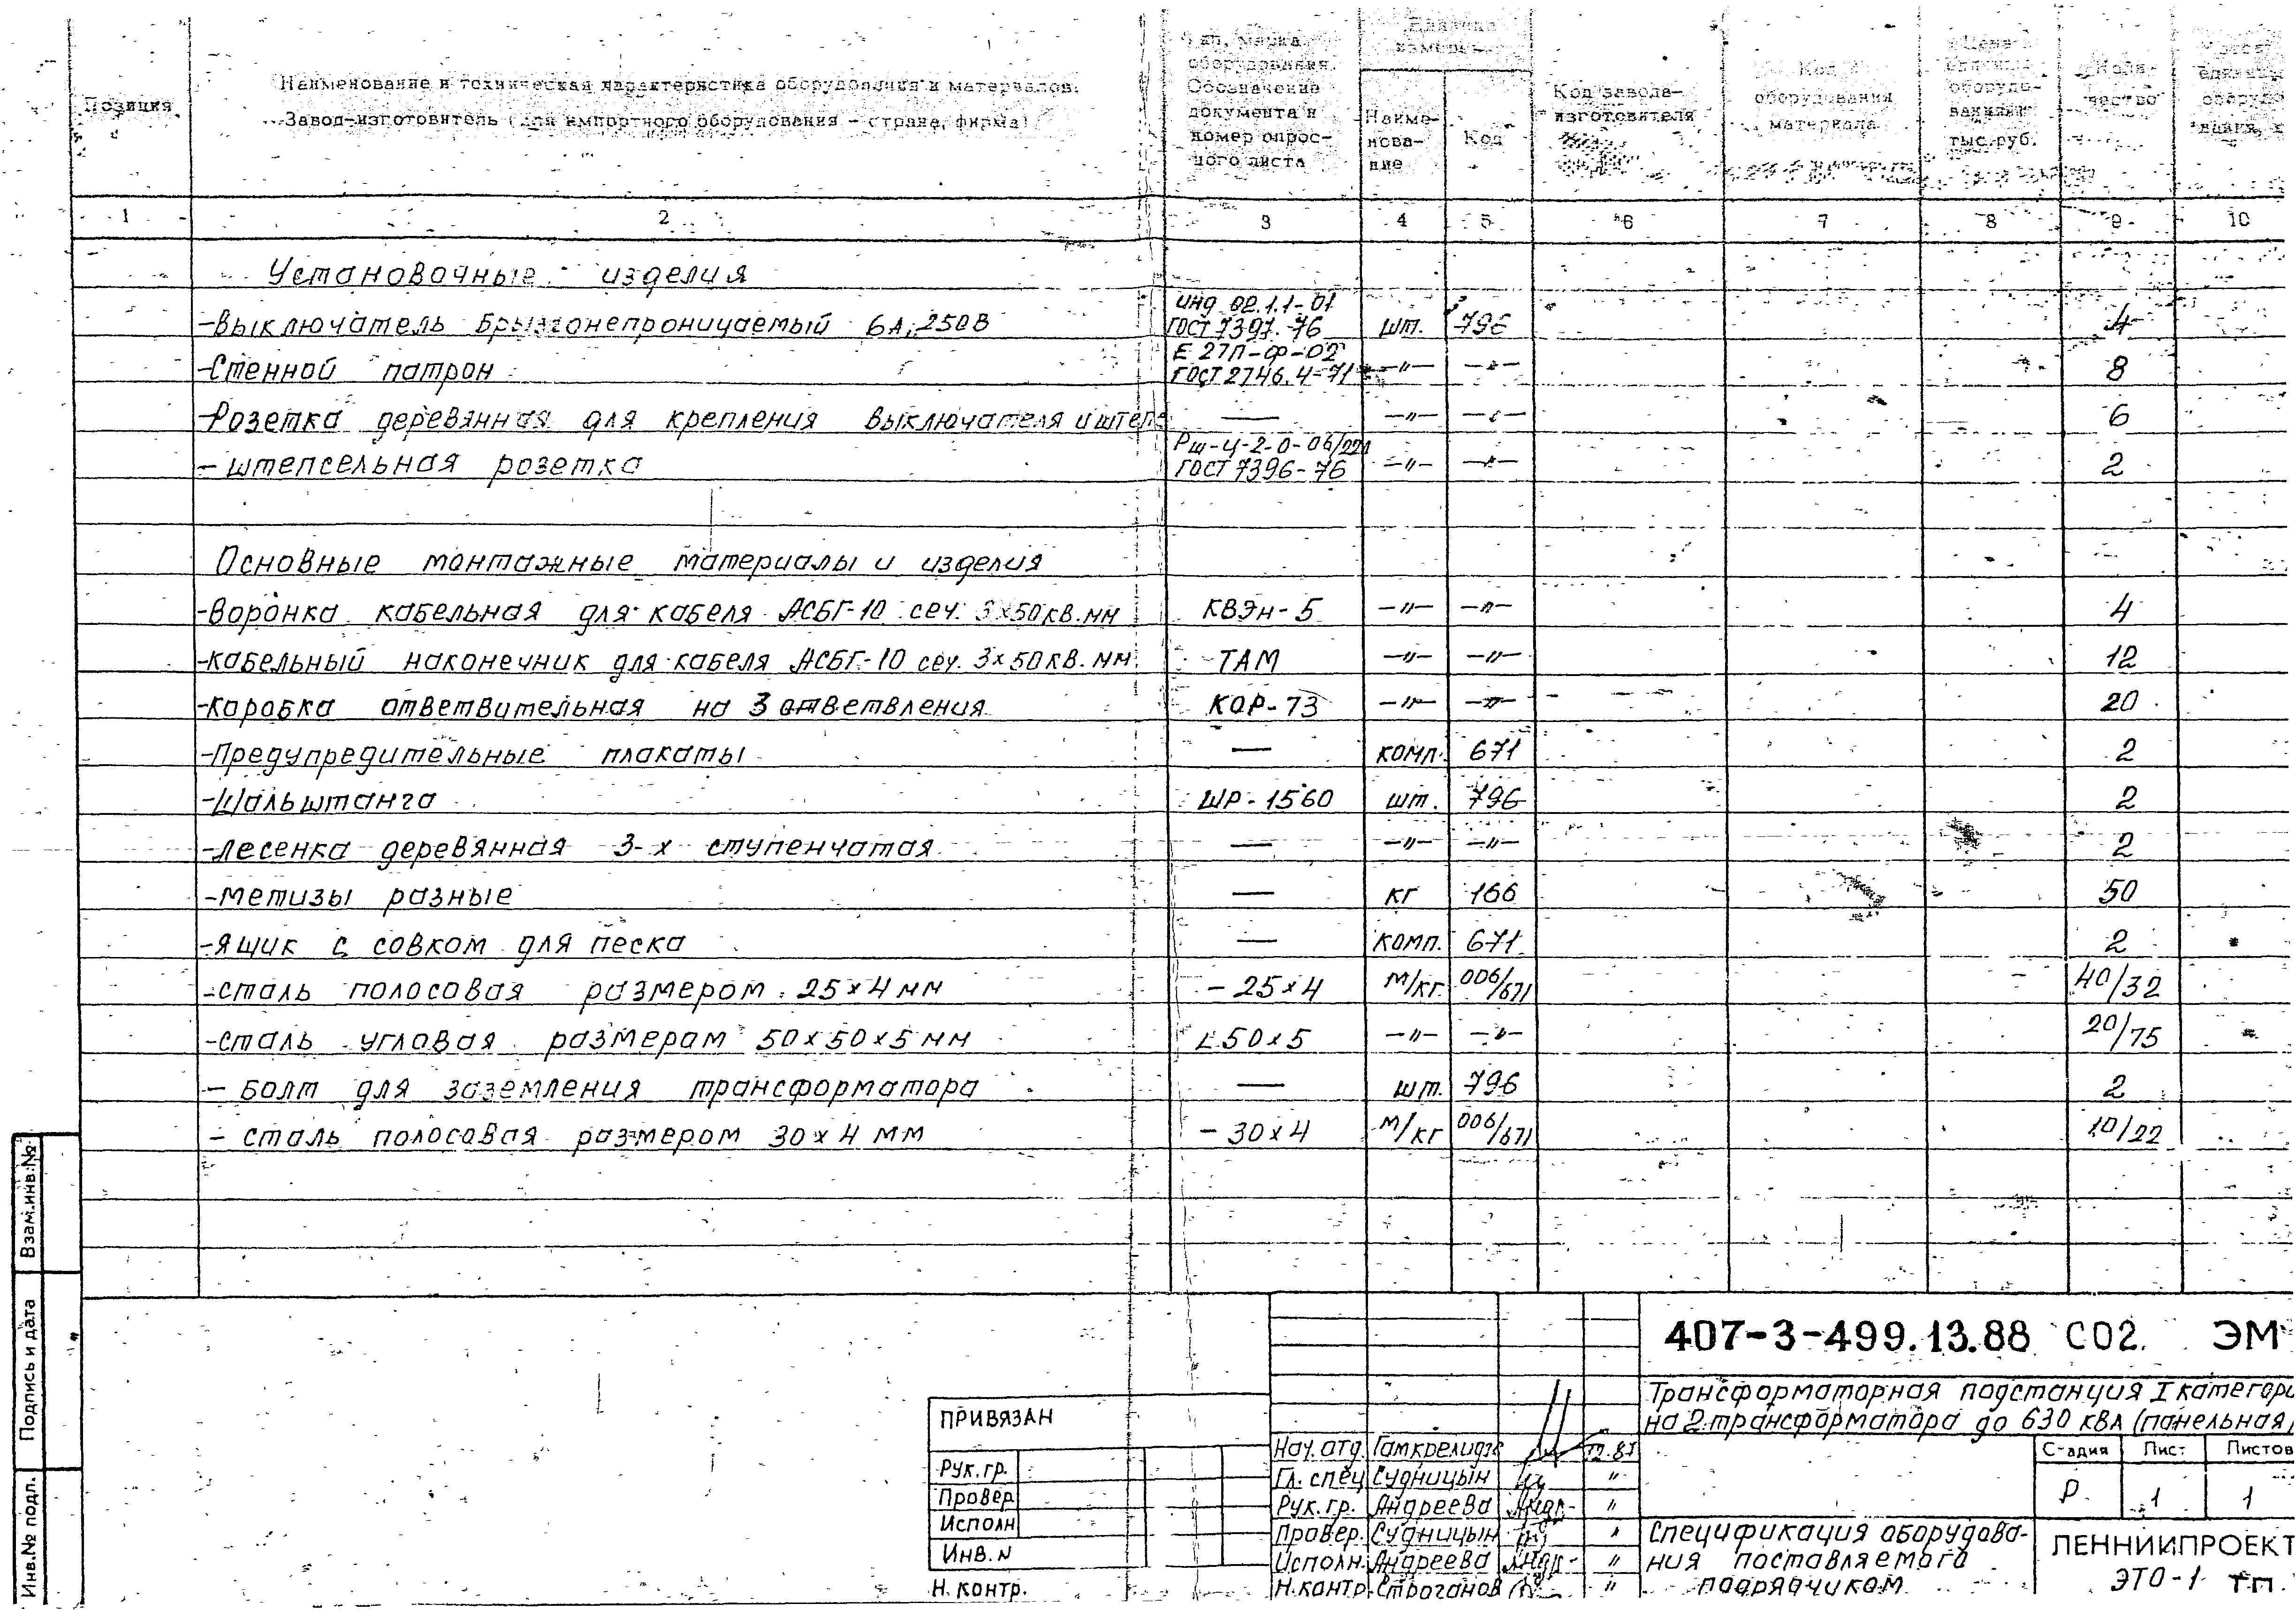 Позиция
Наименование и техническая характеристика оборудования и материалов.
Завод-изготовитель (для импортного оборудования - страна, фирма)
Тип, марка оборудования. Обозначение документа и номер опросного листа
Единица измерения
Наиме-
нова-
ние
Код
Код завода-
изготовителя
Код
оборудования
материала
Цена
единицы
оборудо-
вания
тыс. руб.
Коли-
чество
1 2 3 4 5 6 7 8 9 10
Установочные изделия
-Выключатель брызгонепроницаемый 6А, 250В ГОСТ 7397-76 шт. 796 4
-Стенной патрон Е 27П-Ф-02 ГОСТ 2746.4-71 -"- -"- 8
-Розетка деревянная для крепления выключателя и штепс — -"- -"- 6
-штепсельная розетка Рш-ц-2-0-06/220 ГОСТ 7396-76 -"- -"- 2
Основные монтажные материалы и изделия
-Воронка кабельная для кабеля АСБГ-10 сеч. 3×50кв.мм КВЭн-5 -"- -"- 4
-кабельный наконечник для кабеля АСБГ-10 сеч. 3×50кв.мм. ТАМ -"- -"- 12
-коробка ответвительная на 3 ответвления КОР-73 -"- -"- 20
-Предупредительные плакаты — комп. 671 2
-Шальштанга ШР-1560 шт. 796 2
-лесенка деревянная 3-х ступенчатая — -"- -"- 2
-метизы разные — кг 166 50
-ящик с совком для песка — комп. 671 2
-сталь полосовая размером 25×4 мм -25×4 м/кг 006/671 40/32
-сталь угловая размерам 50×50×5 мм L50×5 -"- -"- 20/75
-болт для заземления трансформатора — шт. 796 2
-сталь полосовая размером 30×4 мм -30×4 м/кг 006/671 10/22
Взам.инв.№
Подпись и дата
Инв.№ подл.
407-3-499.13.88 СО2. ЭМ
Трансформаторная подстанция I категори
на 2 трансформатора до 630 кВА (панельная)
ПРИВЯЗАН
Рук.гр.
Провер
Исполн
Инв.N
Н.контр.
Нач.отд. Гамкрелидзе 12.87
Гл. спец Судницын "
Рук.гр. Андреева "
Провер. Судницын "
Исполн. Андреева "
Н.контр. Строганов "
Стадия Лист Листов
Р 1 1
Спецификация оборудова-
ния поставляемого
подрядчиком
ЛЕННИИПРОЕКТ
ЭТО-1 ТП